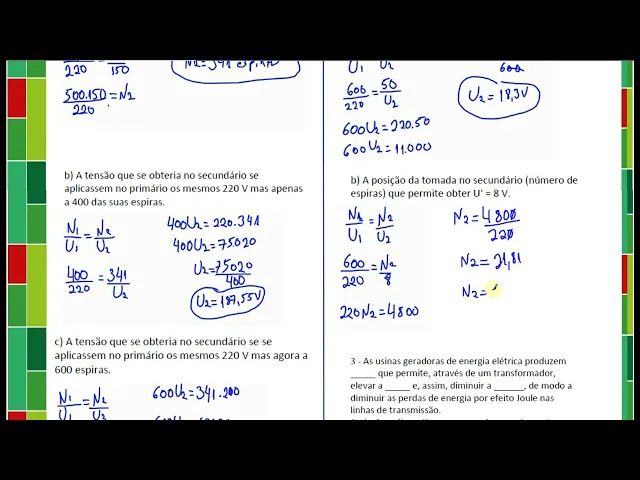 220 150
N2 = 341 espiras
500.150 = N2
220
b) A tensão que se obteria no secundário se
aplicassem no primário os mesmos 220 V mas apenas
a 400 das suas espiras.
N1 = N2
U1 U2
400 = 341
220 U2
400U2 = 220.341
400U2 = 75020
U2 = 75020
400
U2 = 187,55V
c) A tensão que se obteria no secundário se se
aplicassem no primário os mesmos 220 V mas agora a
600 espiras.
N1 = N2
U1 U2
600U2 = 341.200
U1 U2
600 = 50
220 U2
600U2 = 220.50
600U2 = 11.000
600
U2 = 18,3V
b) A posição da tomada no secundário (número de
espiras) que permite obter U' = 8 V.
N1 = N2
U1 U2
600 = N2
220 8
220N2 = 4800
N2 = 4800
220
N2 = 21,81
N2 =
3 - As usinas geradoras de energia elétrica produzem
_____ que permite, através de um transformador,
elevar a _____ e, assim, diminuir a ______, de modo a
diminuir as perdas de energia por efeito Joule nas
linhas de transmissão.